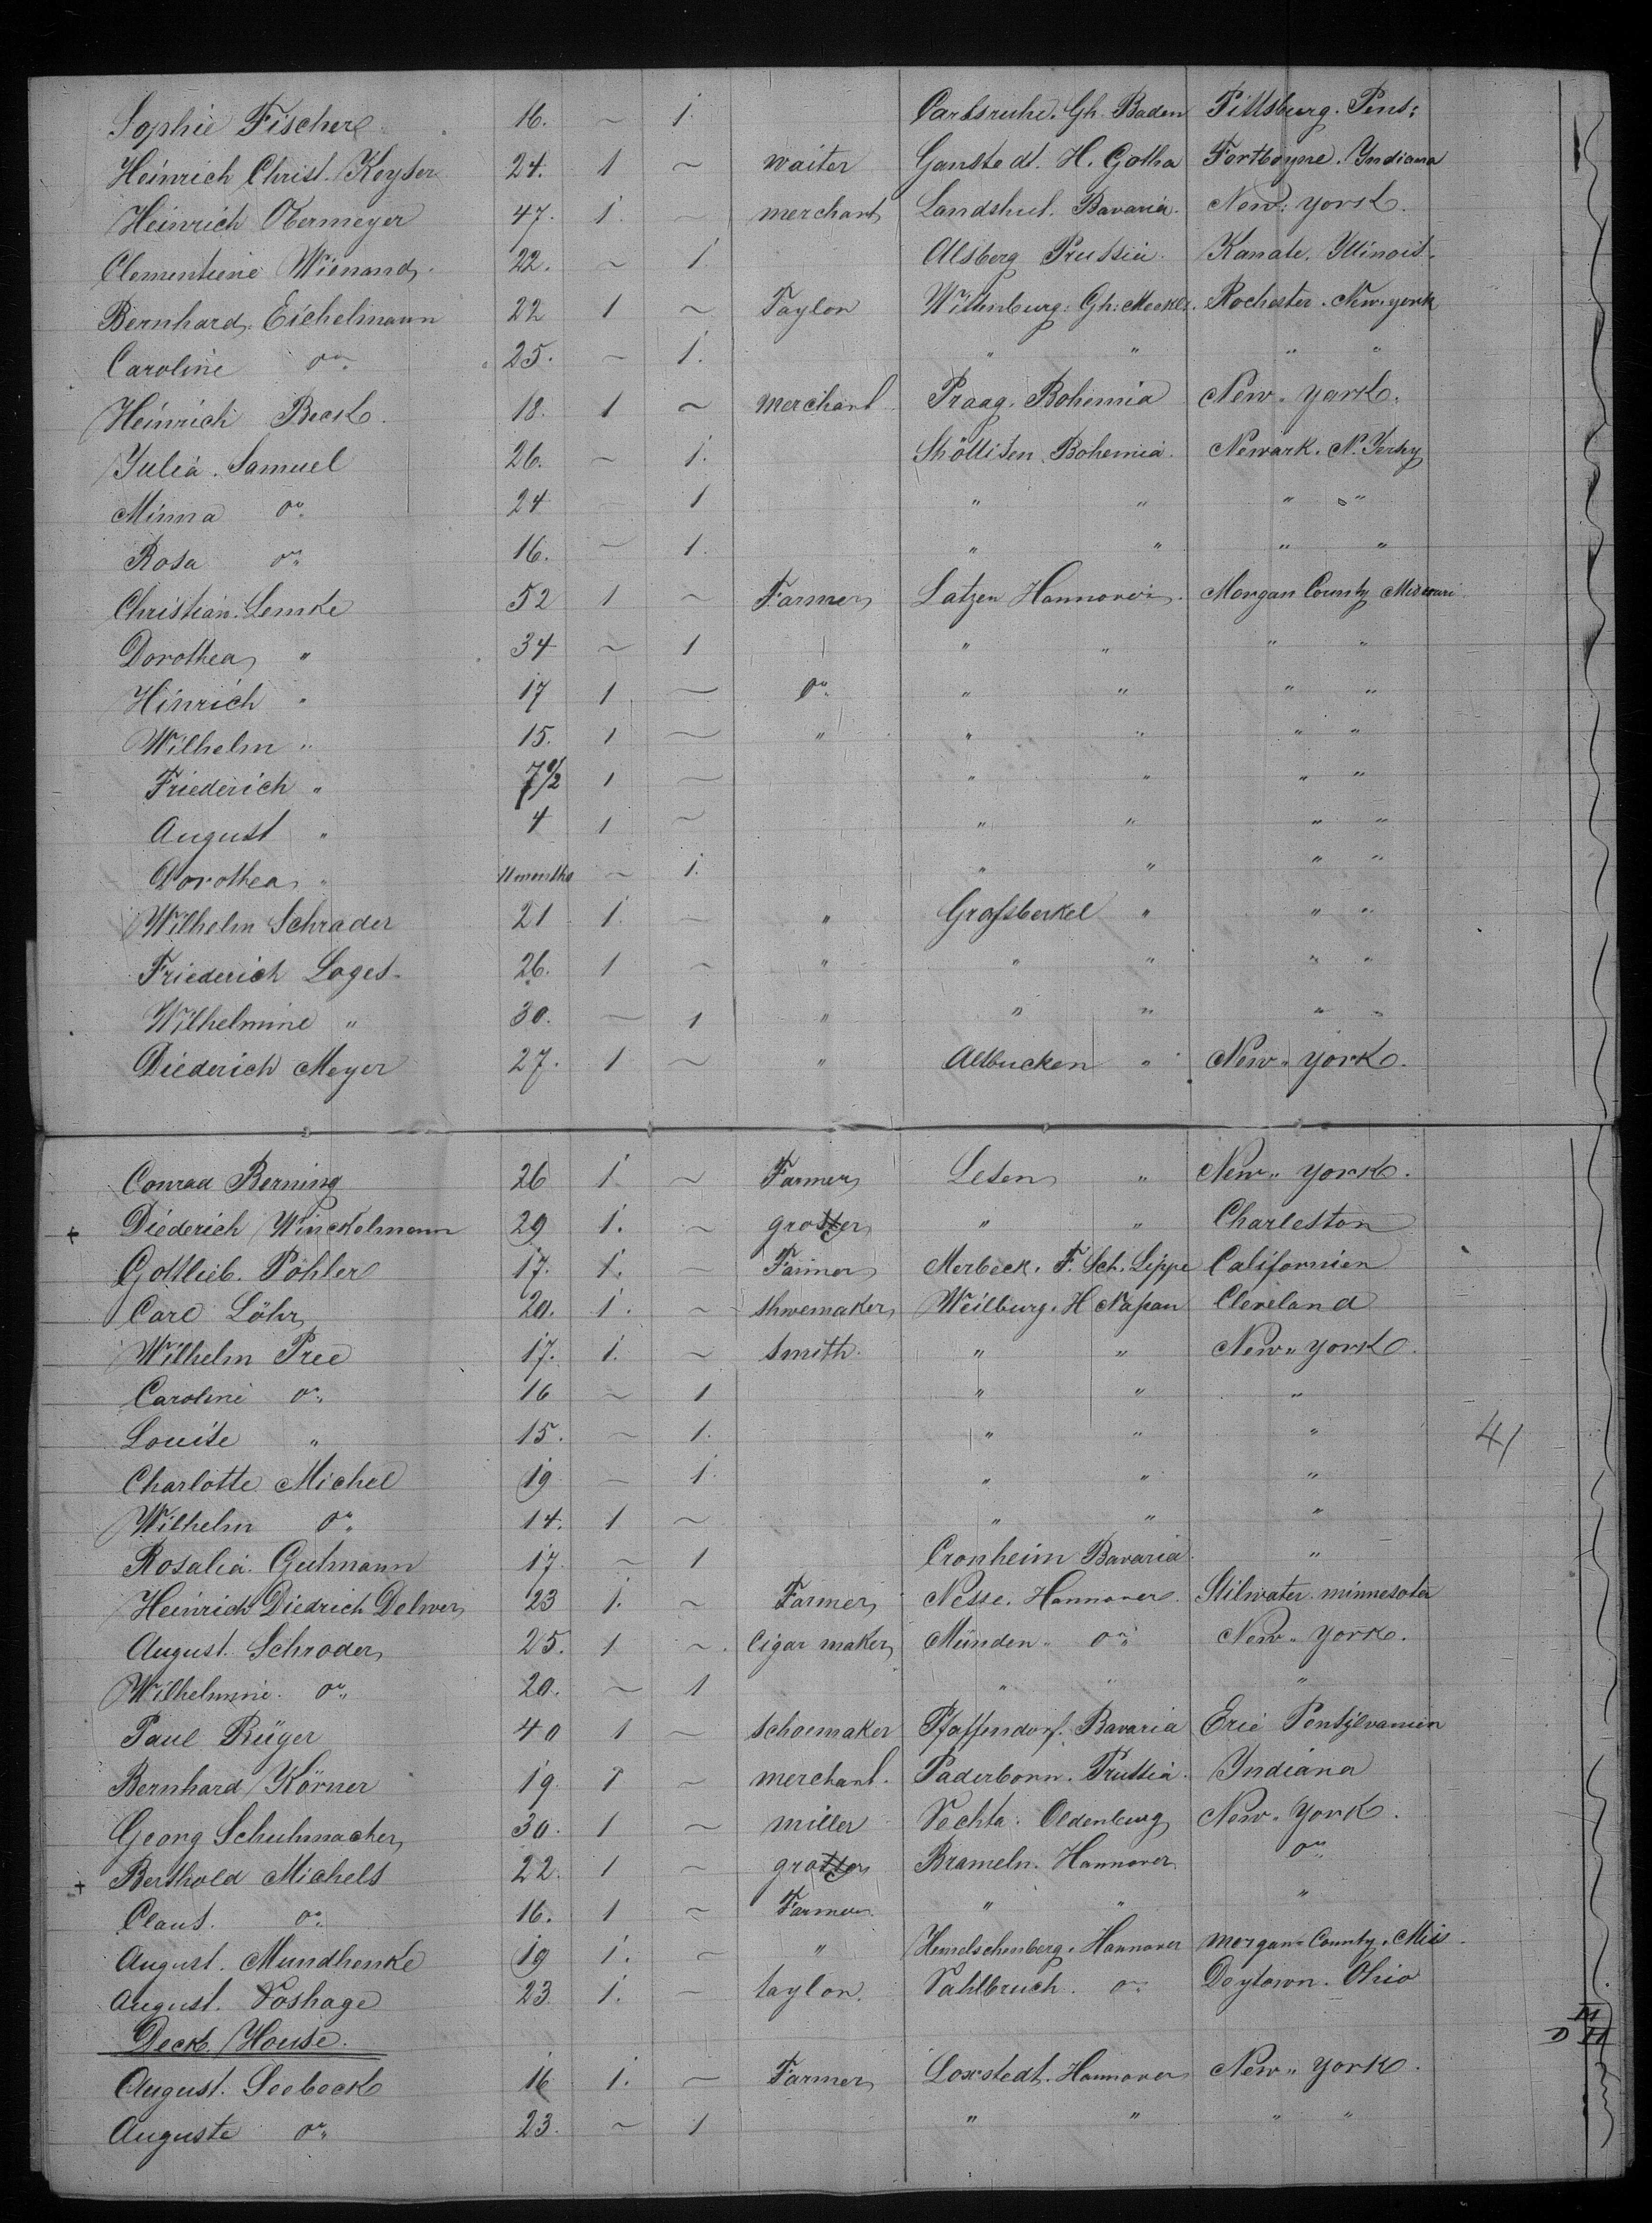 Sophie Fischer 16. ~ 1. Carlsruhe. Gh. Baden Pittsburg. Pens:
Heinrich Christ. Keyser 24. 1 ~ waiter Ganstedt. H. Gotha Fortwayne. Indiana
Heinrich Obermeyer 47. 1. ~ merchant Landshut. Bavaria. New: york.
Clementine Wienand. 22. ~ 1. Alsberg Prussia. Kanate. Illinois.
Bernhard. Eichelmann 22 1 ~ Taylor Wittenburg. Gh: Meckl. Rochester. New. york
Caroline do. 25. ~ 1. " " " "
Heinrich Beck. 18. 1 ~ merchant Praag. Bohemia New. york.
Julia. Samuel 26. ~ 1. Bohemia. Newark. N. Jersey
Minna do. 24 ~ 1 " " " "
Rosa do. 16. ~ 1. " " " "
Christian. Lemke 52 1 ~ Farmer Latzen Hannover. Morgan County Missouri
Dorothea " 34 ~ 1 " " " "
Hinrich " 17 1 ~ do. " " " "
Wilhelm " 15. 1 ~ " " " " "
Friederich " 7 1/2 1 ~ " " " "
August " 4 1 ~ " " " "
Dorothea " 11 months ~ 1. " " " "
Wilhelm Schrader 21 1. ~ " Grofsberkel " " "
Friederich Loges. 26. 1 ~ " " " " "
Wilhelmine " 30. ~ 1 " " " " "
Diederich Meyer 27. 1 ~ " Altbucken " New " york.
Conrad Berning 26 1. ~ Farmer Lesen " New " york.
+ Diederich Winckelmann 29 1. ~ grosser " " Charleston
Gottlieb. Pöhler 17. 1. ~ Farmer Merbeck. F. Sch. Lippe Californien
Carl Löhr 20. 1. ~ shwemaker Weilburg. H Nafsau Cleveland
Wilhelm Pree 17. 1. ~ smith. " " New " york.
Caroline do. 16 ~ 1 " " "
Louise " 15. ~ 1. " " "
Charlotte Michel 19 ~ 1. " " "
Wilhelm do. 14. 1 ~ " " "
Rosalia. Gutmann 17. ~ 1 Cronheim Bavaria. "
Heinrich Diedrich Delwer 23 1. ~ Farmer Nesse. Hannover. Stilwater. minnesota
August. Schroder 25. 1 ~ Cigar maker Münden " do. New " york.
Wilhelmine. do. 20. ~ 1 " " "
Paul Rüger 40 1 ~ schoemaker Pfaffendorf. Bavaria Erie Pensylvanien
Bernhard Körner 19 1 ~ merchant. Paderborn. Prussia. Indiana
Georg Schuhmacher 30. 1 ~ miller Vechta. Oldenburg New. York.
+ Berthold Michels 22. 1 ~ grosser Brameln. Hannover. do.
Claus. do. 16. 1 ~ Farmer " " "
August. Mundhenke 19 1. ~ " Hannover morgan County. Mis.
August. Voshage 23. 1. ~ taylor Vahlbruch. do. Deytown. Ohio
Deck House.
August. Seebeck 16 1. ~ Farmer Loxstedt. Hannover New " york.
Auguste do. 23. ~ 1 " " " "
41